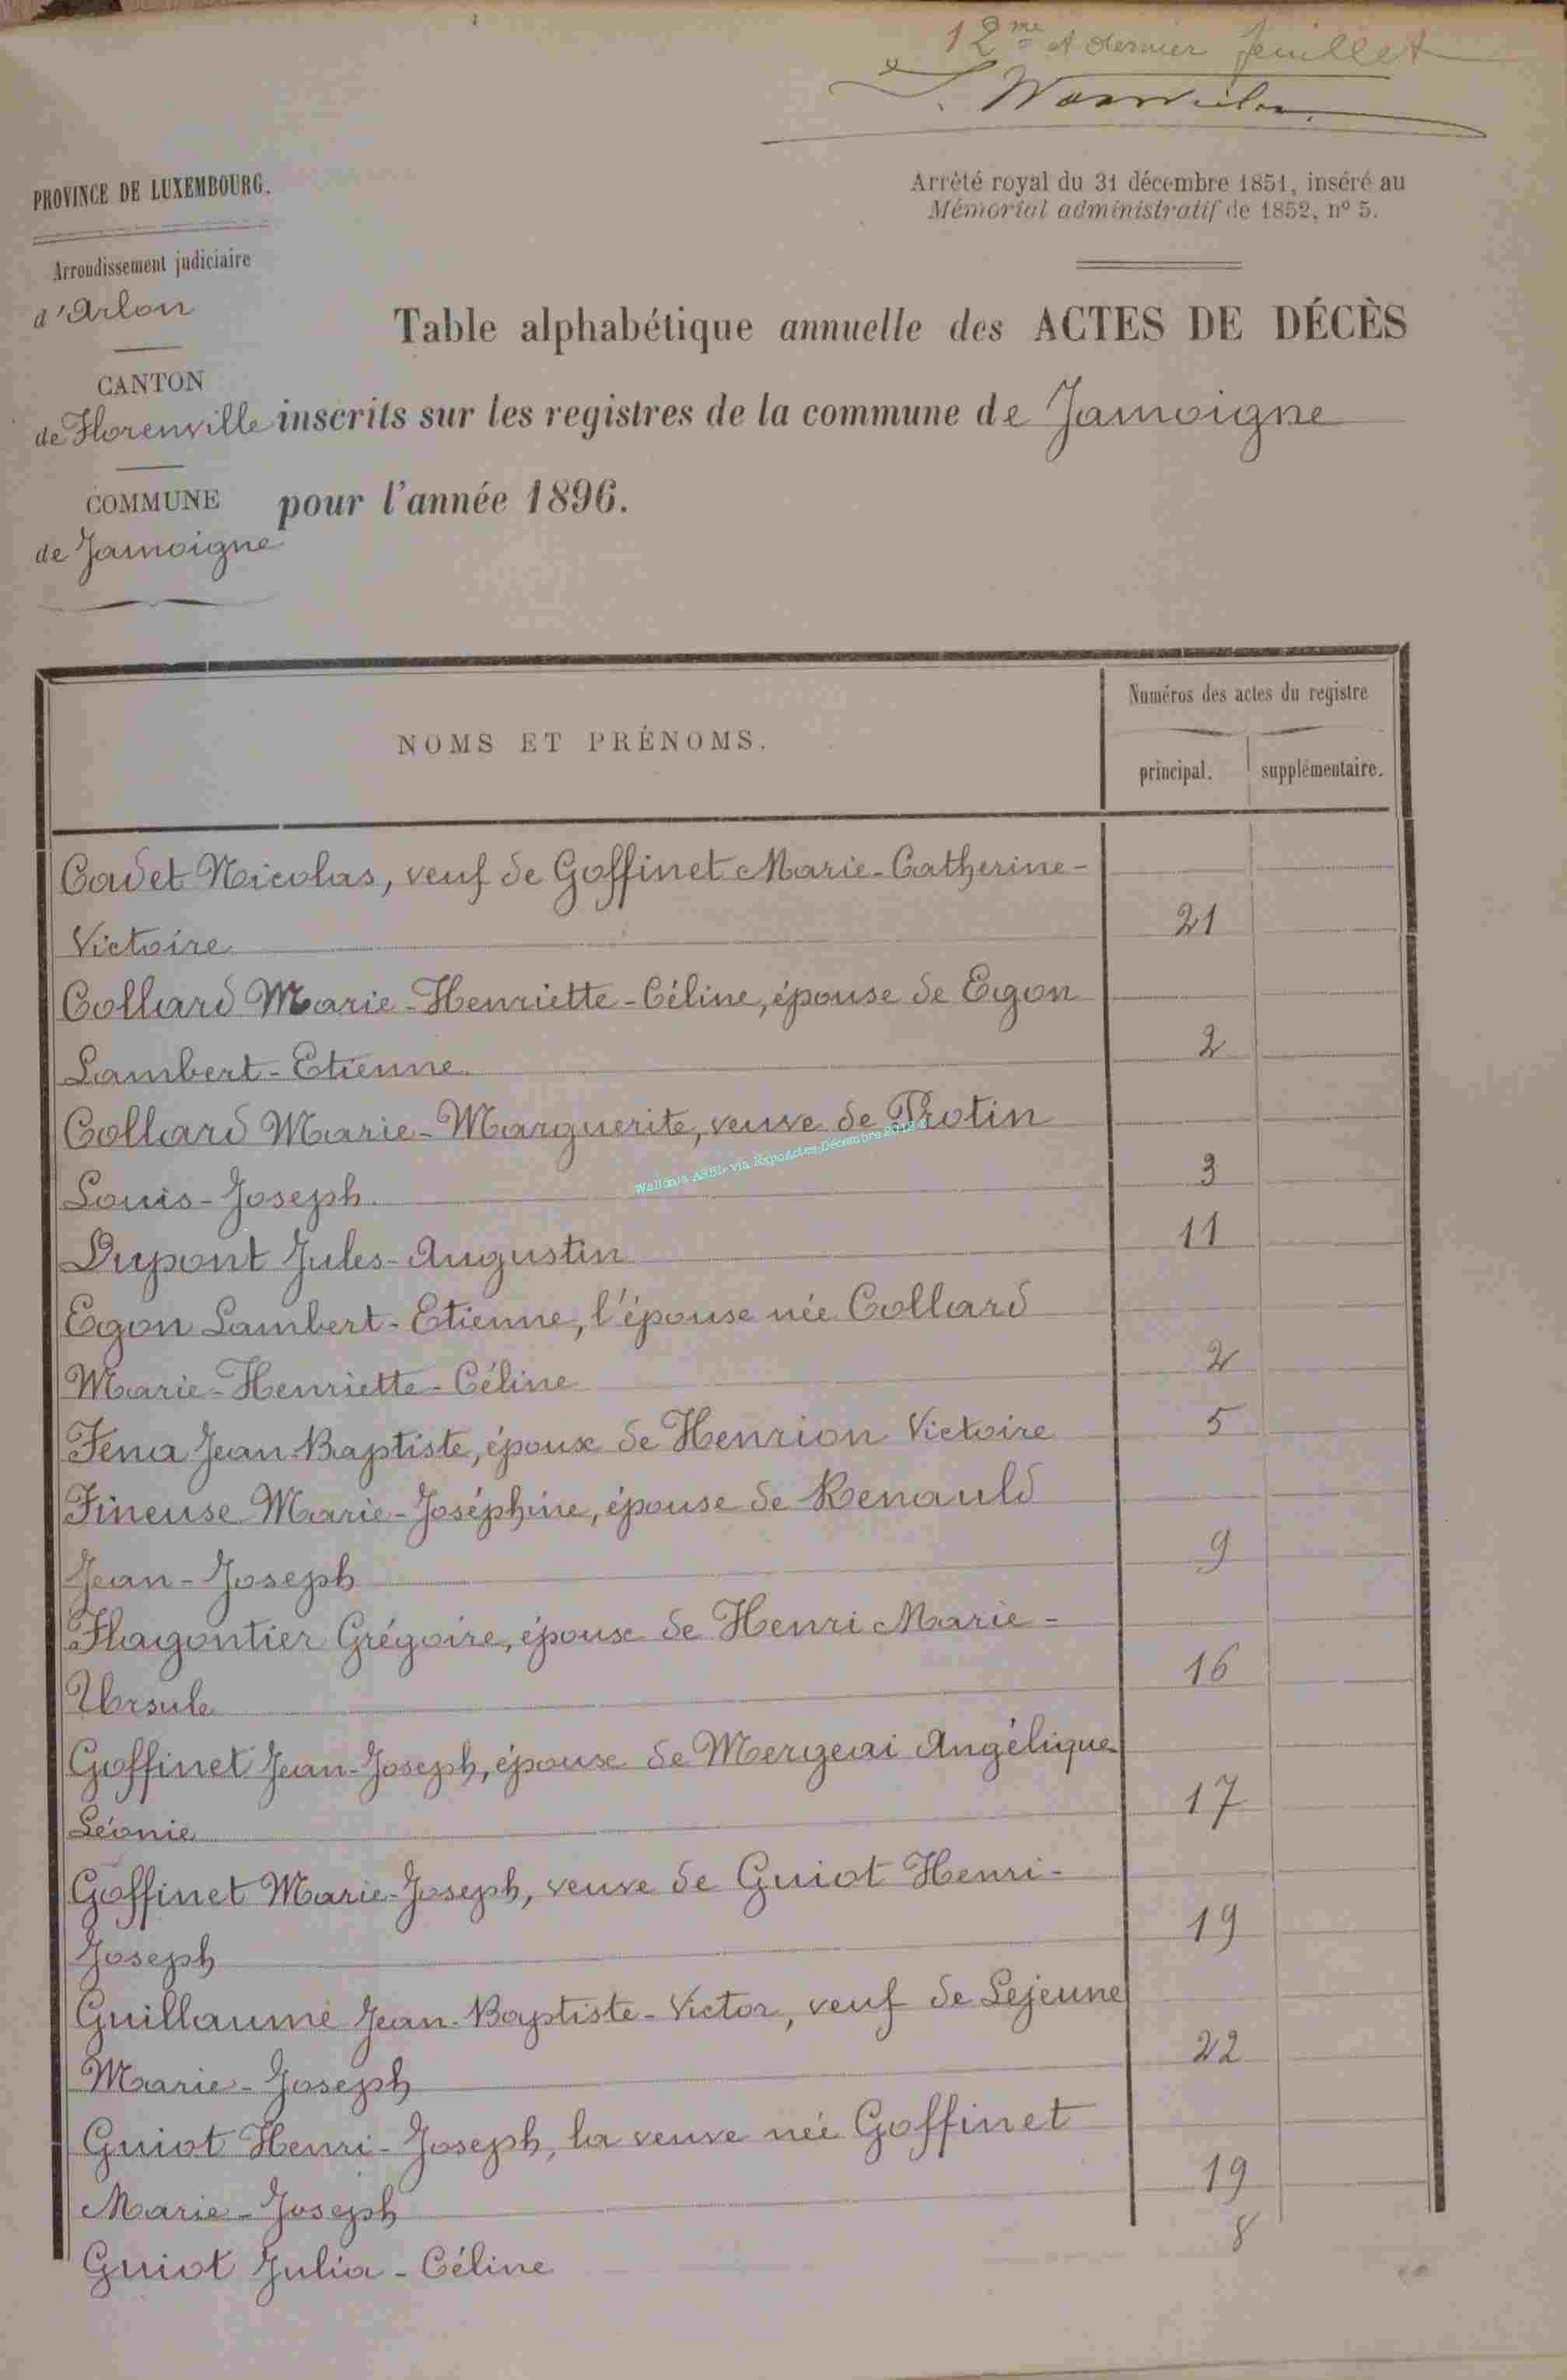 12me et dernier feuillet
PROVINCE DE LUXEMBOURG.
Arrêté royal du 31 décembre 1851, inséré au
Mémorial administratif de 1852, nº 5.
Arrondissement judiciaire
d'Arlon
Table alphabétique annuelle des ACTES DE DÉCÈS
CANTON
de Florenville inscrits sur les registres de la commune de Jamoigne
COMMUNE pour l'année 1896.
de Jamoigne
NOMS ET PRÉNOMS.
Numéros des actes du registre
principal. supplémentaire.
Codet Nicolas, veuf de Goffinet Marie-Catherine-
Victoire 21
Collard Marie-Henriette-Céline, épouse de Egon
Lambert-Etienne 2
Collard Marie-Marguerite, veuve de Protin
Wallonia ASBL via ExpoActes Décembre 2018
Louis-Joseph 3
Dupont Jules-Augustin 11
Egon Lambert-Etienne, l'épouse née Collard
Marie-Henriette-Céline 2
Féna Jean-Baptiste, époux de Henrion Victoire 5
Fineuse Marie-Joséphine, épouse de Renauld
Jean-Joseph 9
Flagontier Grégoire, époux de Henri Marie-
Ursule 16
Goffinet Jean-Joseph, époux de Mergeai Angélique
Léonie 17
Goffinet Marie-Joseph, veuve de Guiot Henri-
Joseph 19
Guillaume Jean-Baptiste-Victor, veuf de Lejeune
Marie-Joseph 22
Guiot Henri-Joseph, la veuve née Goffinet
Marie-Joseph 19
Guiot Julia-Céline 8